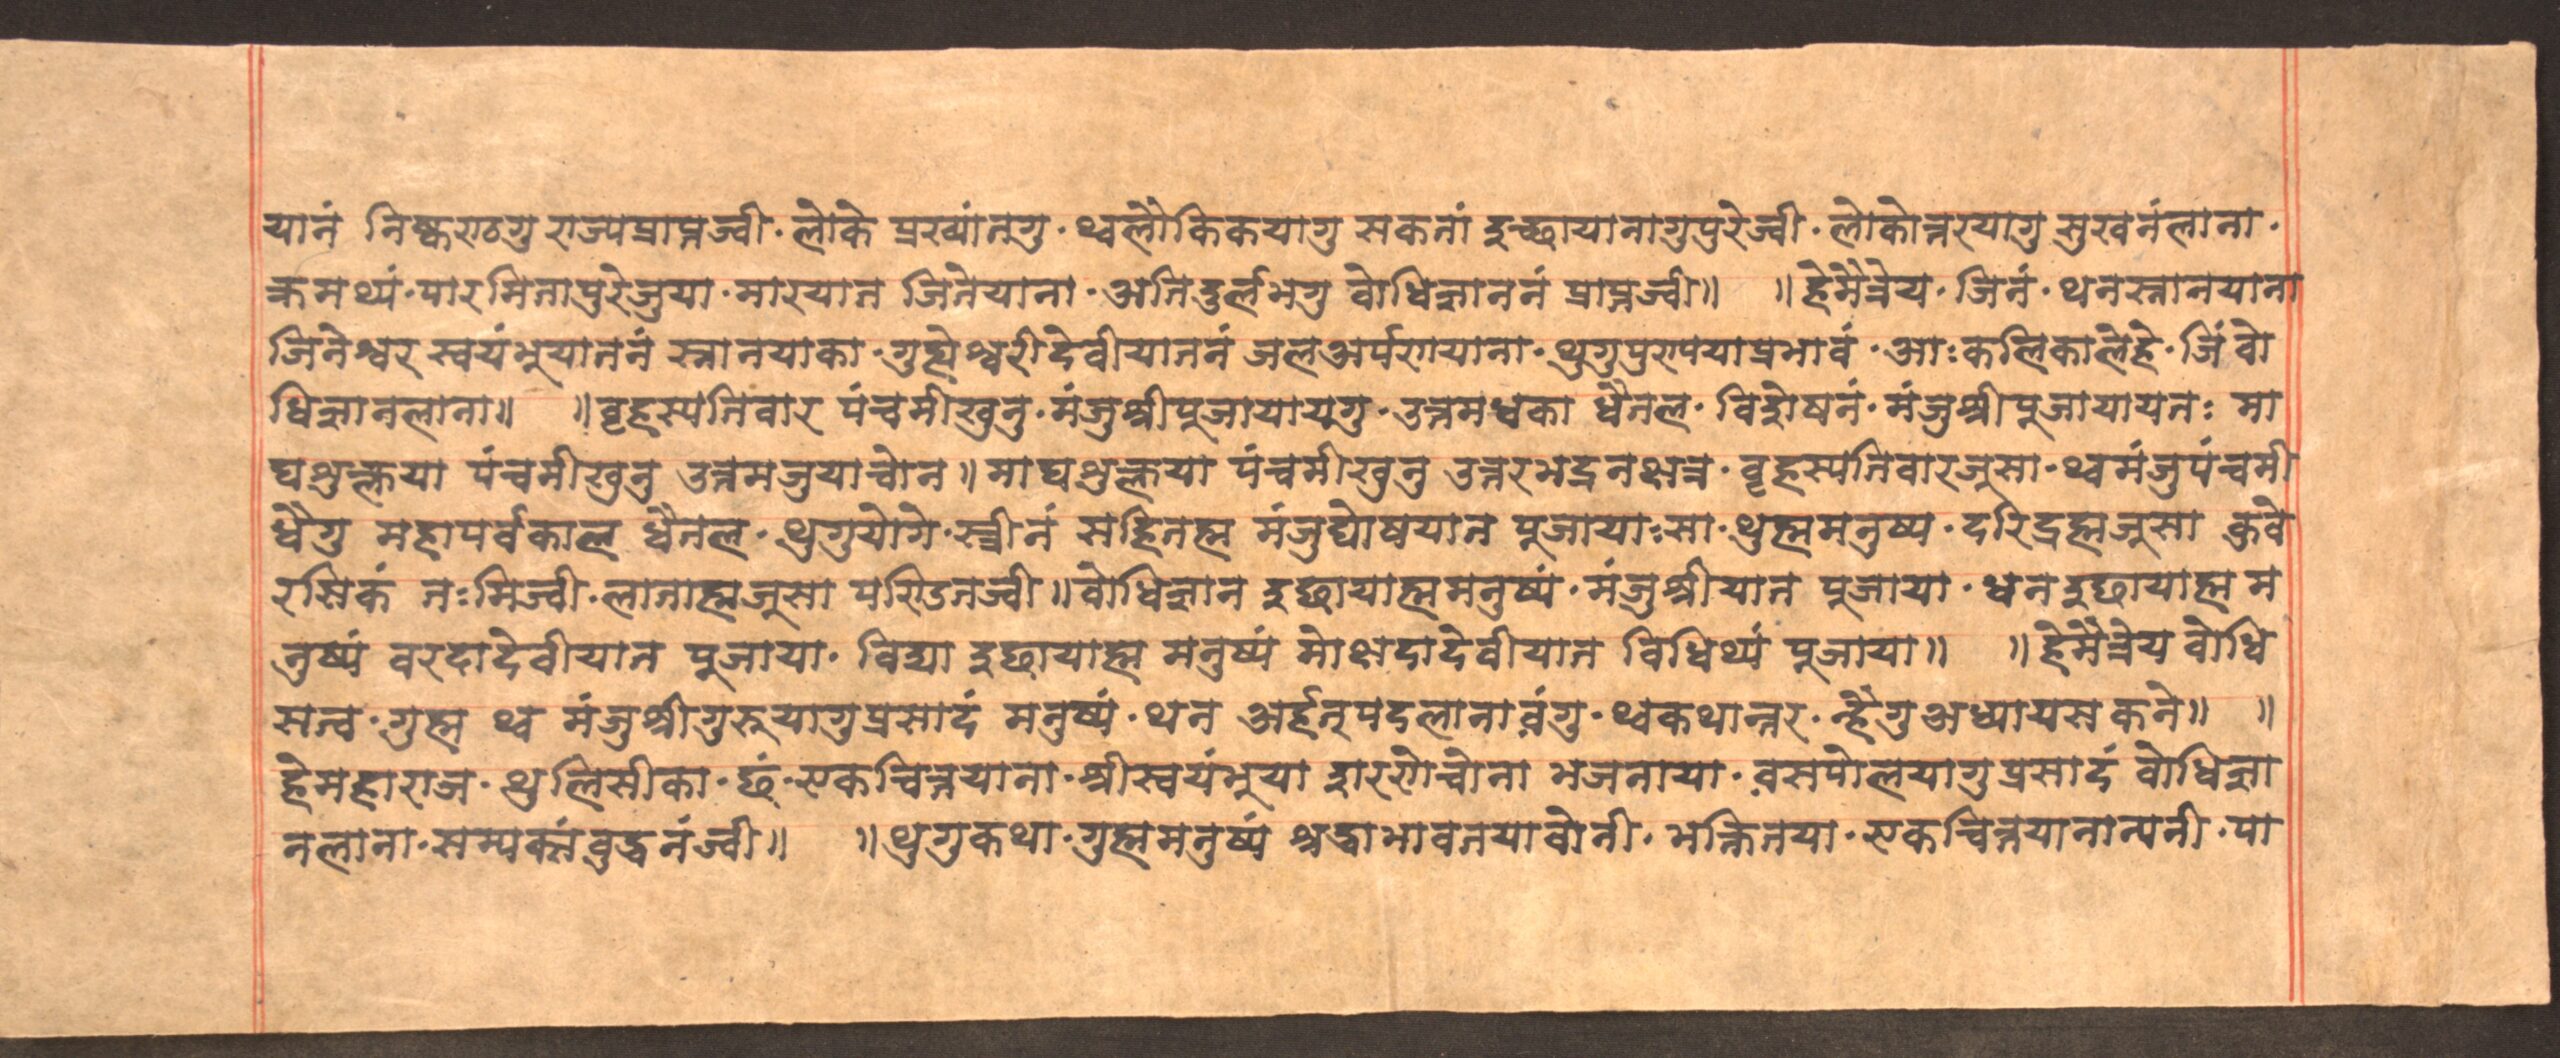 यानं निष्कराठगु राज्यप्राप्तज्वी · लोके प्रख्यांतगु · थ्वलौकिकयागु सकतां इन्छायानागुपुरेज्वी · लोकोत्तरयागु सुखनंलाना ·
क्रमथ्यं · पारमितापुरेजुया · मारयात जितेयाना · अतिदुर्लभगु वोधिज्ञाननं प्राप्तज्वी॥ ॥हेमैत्रेय · जिनं · थनस्नानयाना
जिनेश्वर स्वयंभुयातनं स्नानयाका · गुह्येश्वरीदेवीयातनं जलअर्पणयाना · थुगुपुरुपयाप्रभावं · आःकलिकालेहे · जिंवो
धिज्ञानलाना॥ ॥वृहस्पतिवार पंचमीखुनु · मंजुश्रीपुजायायगु · उत्तमधका धैतल · विशेषनं · मंजुश्रीपुजायायतः मा
घशुक्लया पंचमीखुनु उत्तमजुयाचोन॥ माघशुक्लया पंचमीखुनु उत्तरभद्रनक्षत्र · वृहस्पतिवारजुसा · थ्वमंजुपंचमी
धैगु महापर्वकाल धैतल · थुगुयोगे · स्त्रीनं सहितह्म मंजुघोषयात पुजायाःसा · थुह्ममनुष्य · दरिद्रह्मजुसा कुवे
रसिकं तःमिज्वी · लाताह्मजुसा परिडतज्वी॥ वोधिज्ञान इछायाह्ममनुष्यं · मंजुश्रीयात पुजाया · धन इछायाह्म म
नुष्यं वरदादेवीयात पुजाया · विद्या इछायाह्म मनुष्यं मोक्षदादेवीयात विधिथ्यं पुजाया॥ ॥हेमैत्रेय वोधि
सत्व · गुह्म थ्व मंजुश्रीगुरुयागुप्रसादं मनुष्यं · थन अर्हत्पदलानावंगु · थ्वकथान्तर · न्हैगुअध्यायस कने॥ ॥
हेमहाराज · थुलिसीका · छं · एकचित्तयाना · श्रीस्वयंभुया शरणेचोना भजनाया · वसपोलयागुप्रसादं वोधिज्ञा
नलाना · सम्यक्सं वुद्धनंज्वी॥ ॥थुगुकथा · गुह्ममनुष्यं श्रद्धाभावतयावोनी · भक्तितया · एकचित्तयानान्यनी · पा